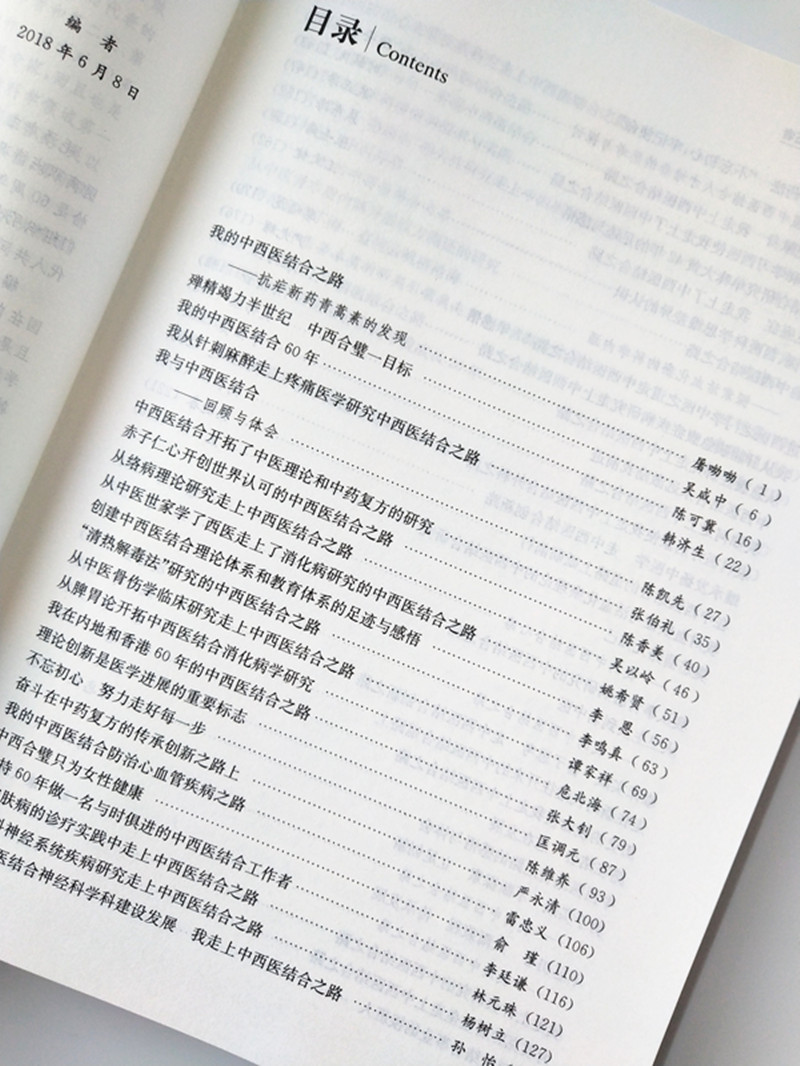 编 者
2018年6月8日
目录 Contents
我的中西医结合之路
——抗疟新药青蒿素的发现 …… 屠呦呦（1）
殚精竭力半世纪 中西合璧一目标 …… 吴咸中（6）
我的中西医结合60年 …… 陈可冀（16）
我从针刺麻醉走上疼痛医学研究中西医结合之路 …… 韩济生（22）
我与中西医结合
——回顾与体会 …… 陈凯先（27）
中西医结合开拓了中医理论和中药复方的研究 …… 张伯礼（35）
赤子仁心开创世界认可的中西医结合之路 …… 陈香美（40）
从络病理论研究走上中西医结合之路 …… 吴以岭（46）
从中医世家学了西医走上了消化病研究的中西医结合之路 …… 姚希贤（51）
创建中西医结合理论体系和教育体系的足迹与感悟 …… 李 恩（56）
“清热解毒法”研究的中西医结合之路 …… 李鸣真（63）
从中医骨伤学临床研究走上中西医结合之路 …… 谭家祥（69）
从脾胃论开拓中西医结合消化病学研究 …… 危北海（74）
我在内地和香港60年的中西医结合之路 …… 张大钊（79）
理论创新是医学进展的重要标志 …… 匡调元（87）
不忘初心 努力走好每一步 …… 陈维养（93）
奋斗在中药复方的传承创新之路上 …… 严永清（100）
我的中西医结合防治心血管疾病之路 …… 雷忠义（106）
中西合璧只为女性健康 …… 俞 瑾（110）
持60年做一名与时俱进的中西医结合工作者 …… 李廷谦（116）
肤病的诊疗实践中走上中西医结合之路 …… 林元珠（121）
神经系统疾病研究走上中西医结合之路 …… 杨树立（127）
医结合神经科学科建设发展 我走上中西医结合之路 …… 孙 怡